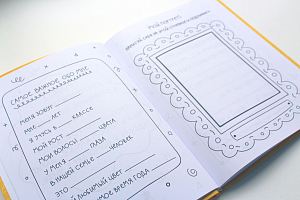 САМОЕ ВАЖНОЕ ОБО МНЕ
МЕНЯ ЗОВУТ
МНЕ ЛЕТ
Я УЧУСЬ В КЛАССЕ
МОЙ РОСТ
МОИ ВОЛОСЫ ЦВЕТА
У МЕНЯ ГЛАЗА
В НАШЕЙ СЕМЬЕ ЧЕЛОВЕК
ЭТО
МОЙ ЛЮБИМЫЙ ЦВЕТ
МОЕ ВРЕМЯ ГОДА
МОЙ ПОРТРЕТ